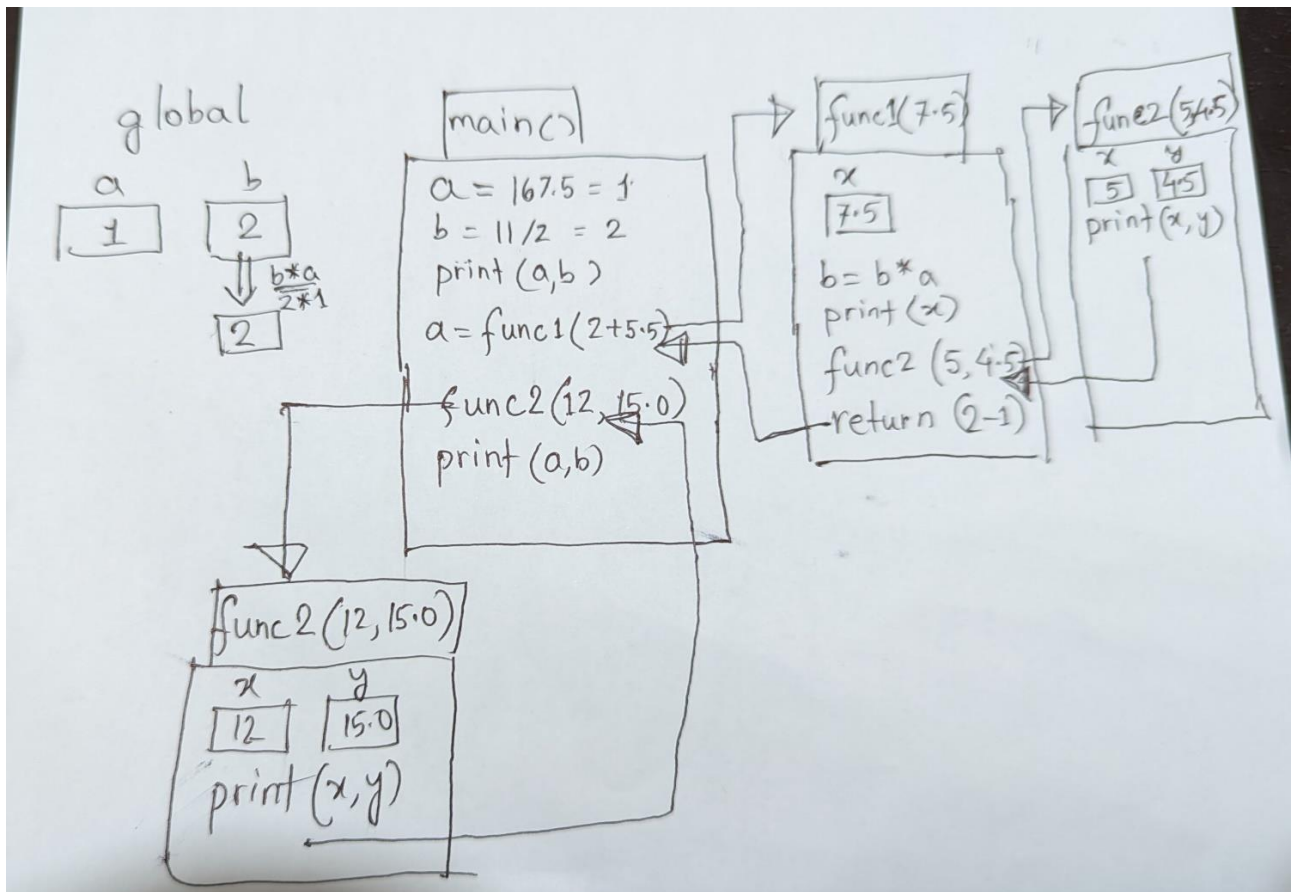 global
a b
1 2
b*a
2*1
2
main()
a = 167.5 = 1
b = 11/2 = 2
print (a,b)
a = func1(2+5.5)
func2(12, 15.0)
print (a,b)
func1(7.5)
x
7.5
b = b*a
print (x)
func2 (5, 4.5)
return (2-1)
func2(5,4.5)
x y
5 4.5
print (x, y)
func2 (12, 15.0)
x y
12 15.0
print (x, y)